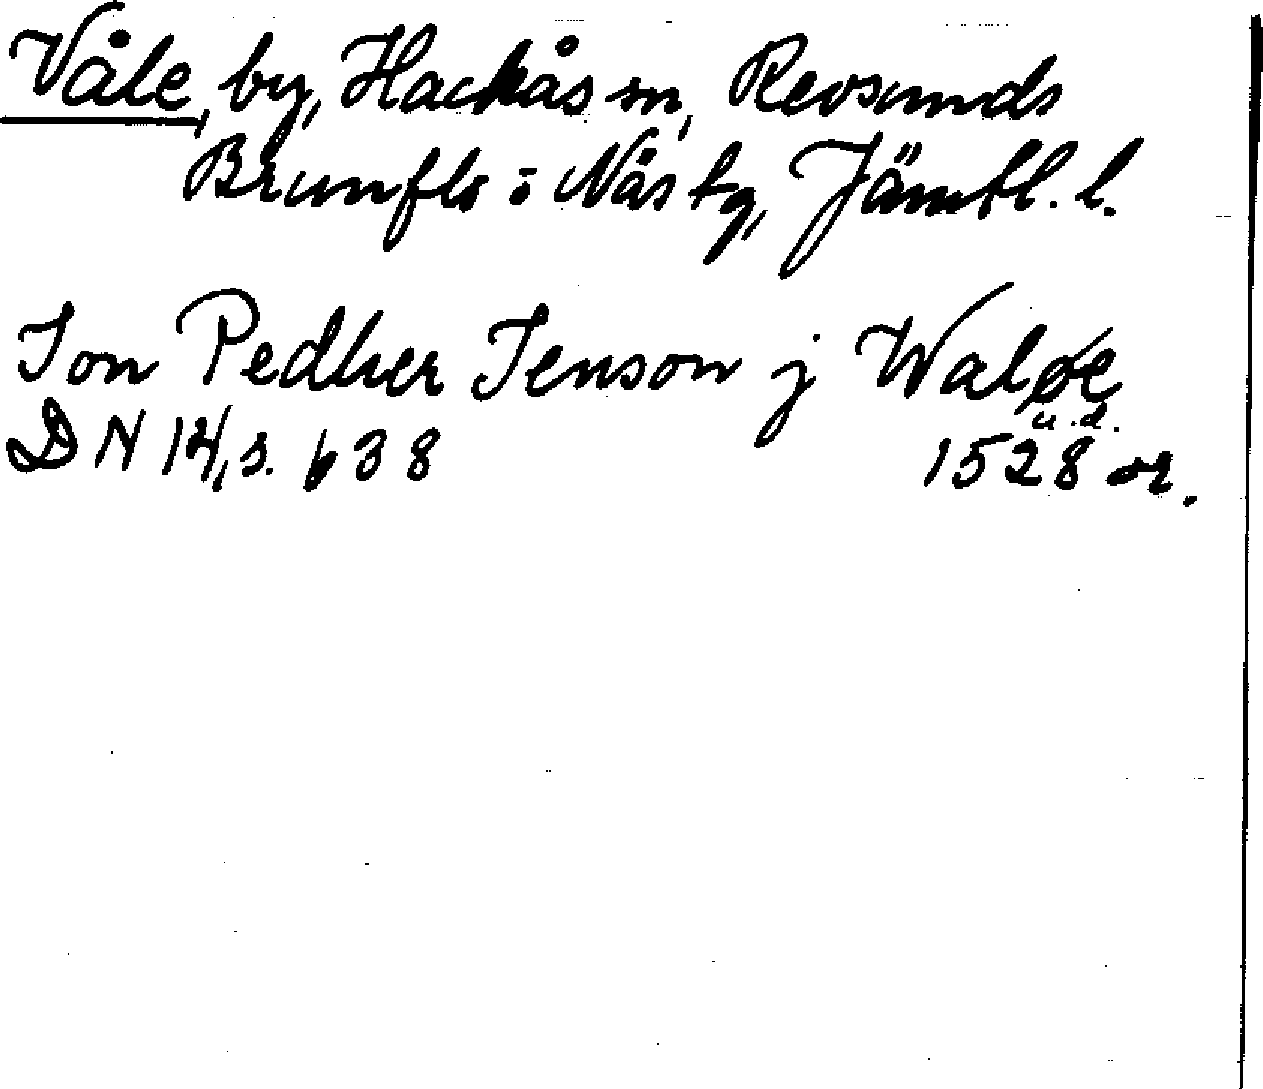 Våle, by, Hackås sn, Revsunds
Brunflo o Näs tg, Jämtl. l.
Jon Pedher Jenson j Waløe
u.d.
DN 14, s. 638 1528 or.